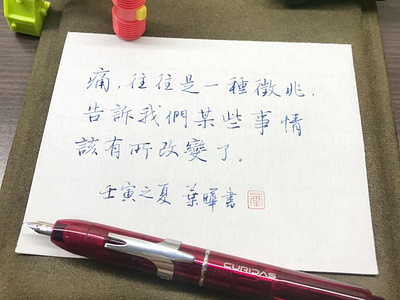 痛，往往是一種徵兆，
告訴我們某些事情
該有所改變了。
壬寅之夏 葉曄書
CURIDAS